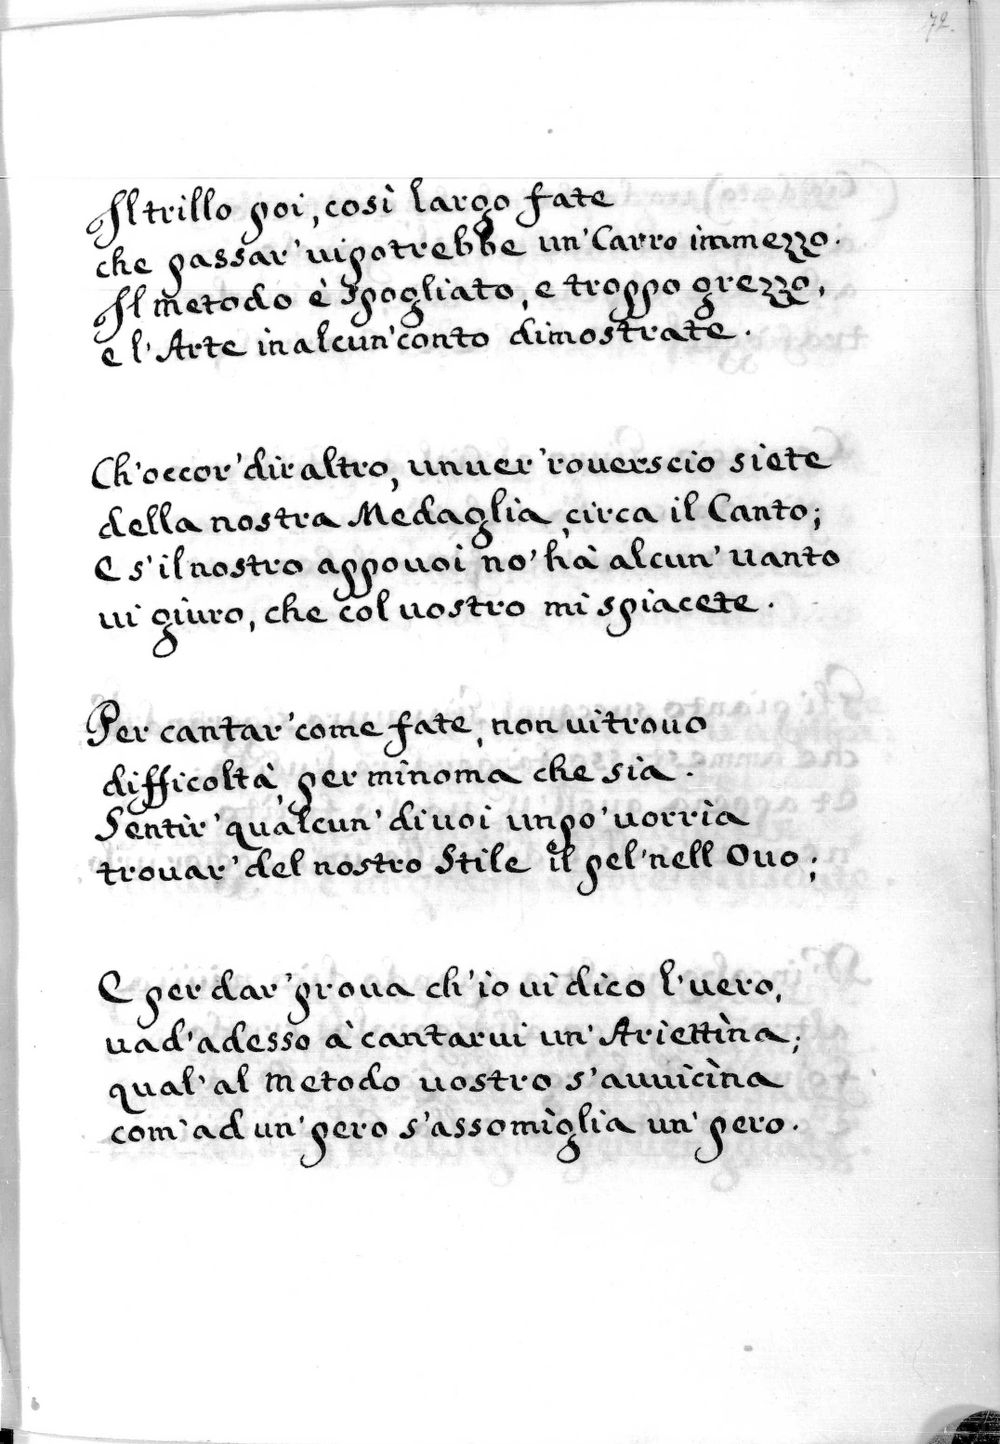 72.
Il trillo poi, così largo fate
che passar' ui potrebbe un' Carro immezzo.
Il metodo è spogliato, e troppo grezzo,
e l'Arte in alcun' conto dimostrate.
Ch'occor' dir altro, un uer' rouerscio siete
della nostra Medaglia circa il Canto;
E s'il nostro appo uoi no' hà alcun' uanto
ui giuro, che col uostro mi spiacete.
Per cantar' come fate, non ui trouo
difficoltà, per minoma che sia.
Sentir' qualcun' di uoi un po' uorria
trouar' del nostro Stile il pel' nell Ouo;
E per dar' proua ch'io ui dico l'uero,
uad' adesso à cantarui un' Ariettina;
qual' al metodo uostro s'auuicina
com' ad un' pero s'assomiglia un' pero.